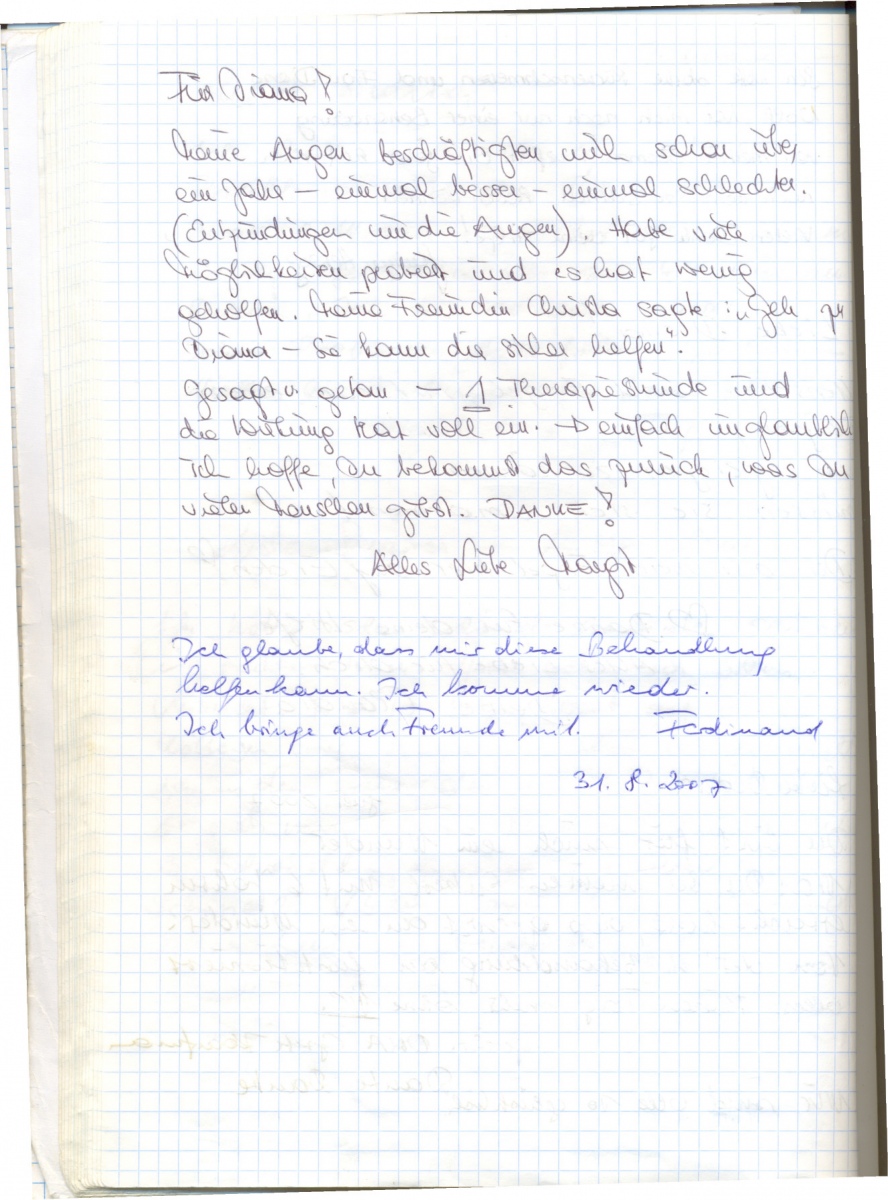 Für Diana!
Meine Augen beschäftigten mich schon über
ein Jahr – einmal besser – einmal schlechter.
(Entzündungen um die Augen). Habe viele
Möglichkeiten probiert und es hat wenig
geholfen. Meine Freundin Christa sagte: „Geh zu
Diana – Sie kann dir sicher helfen“.
Gesagt u. getan – 1 Therapiestunde und
die Wirkung trat voll ein. → einfach unglaublich
Ich hoffe, Du bekommst das zurück, was Du
vielen Menschen gibst. DANKE!
Alles Liebe Margit
Ich glaube, dass mir diese Behandlung
helfen kann. Ich komme wieder.
Ich bringe auch Freunde mit. Ferdinand
31. 8. 2007